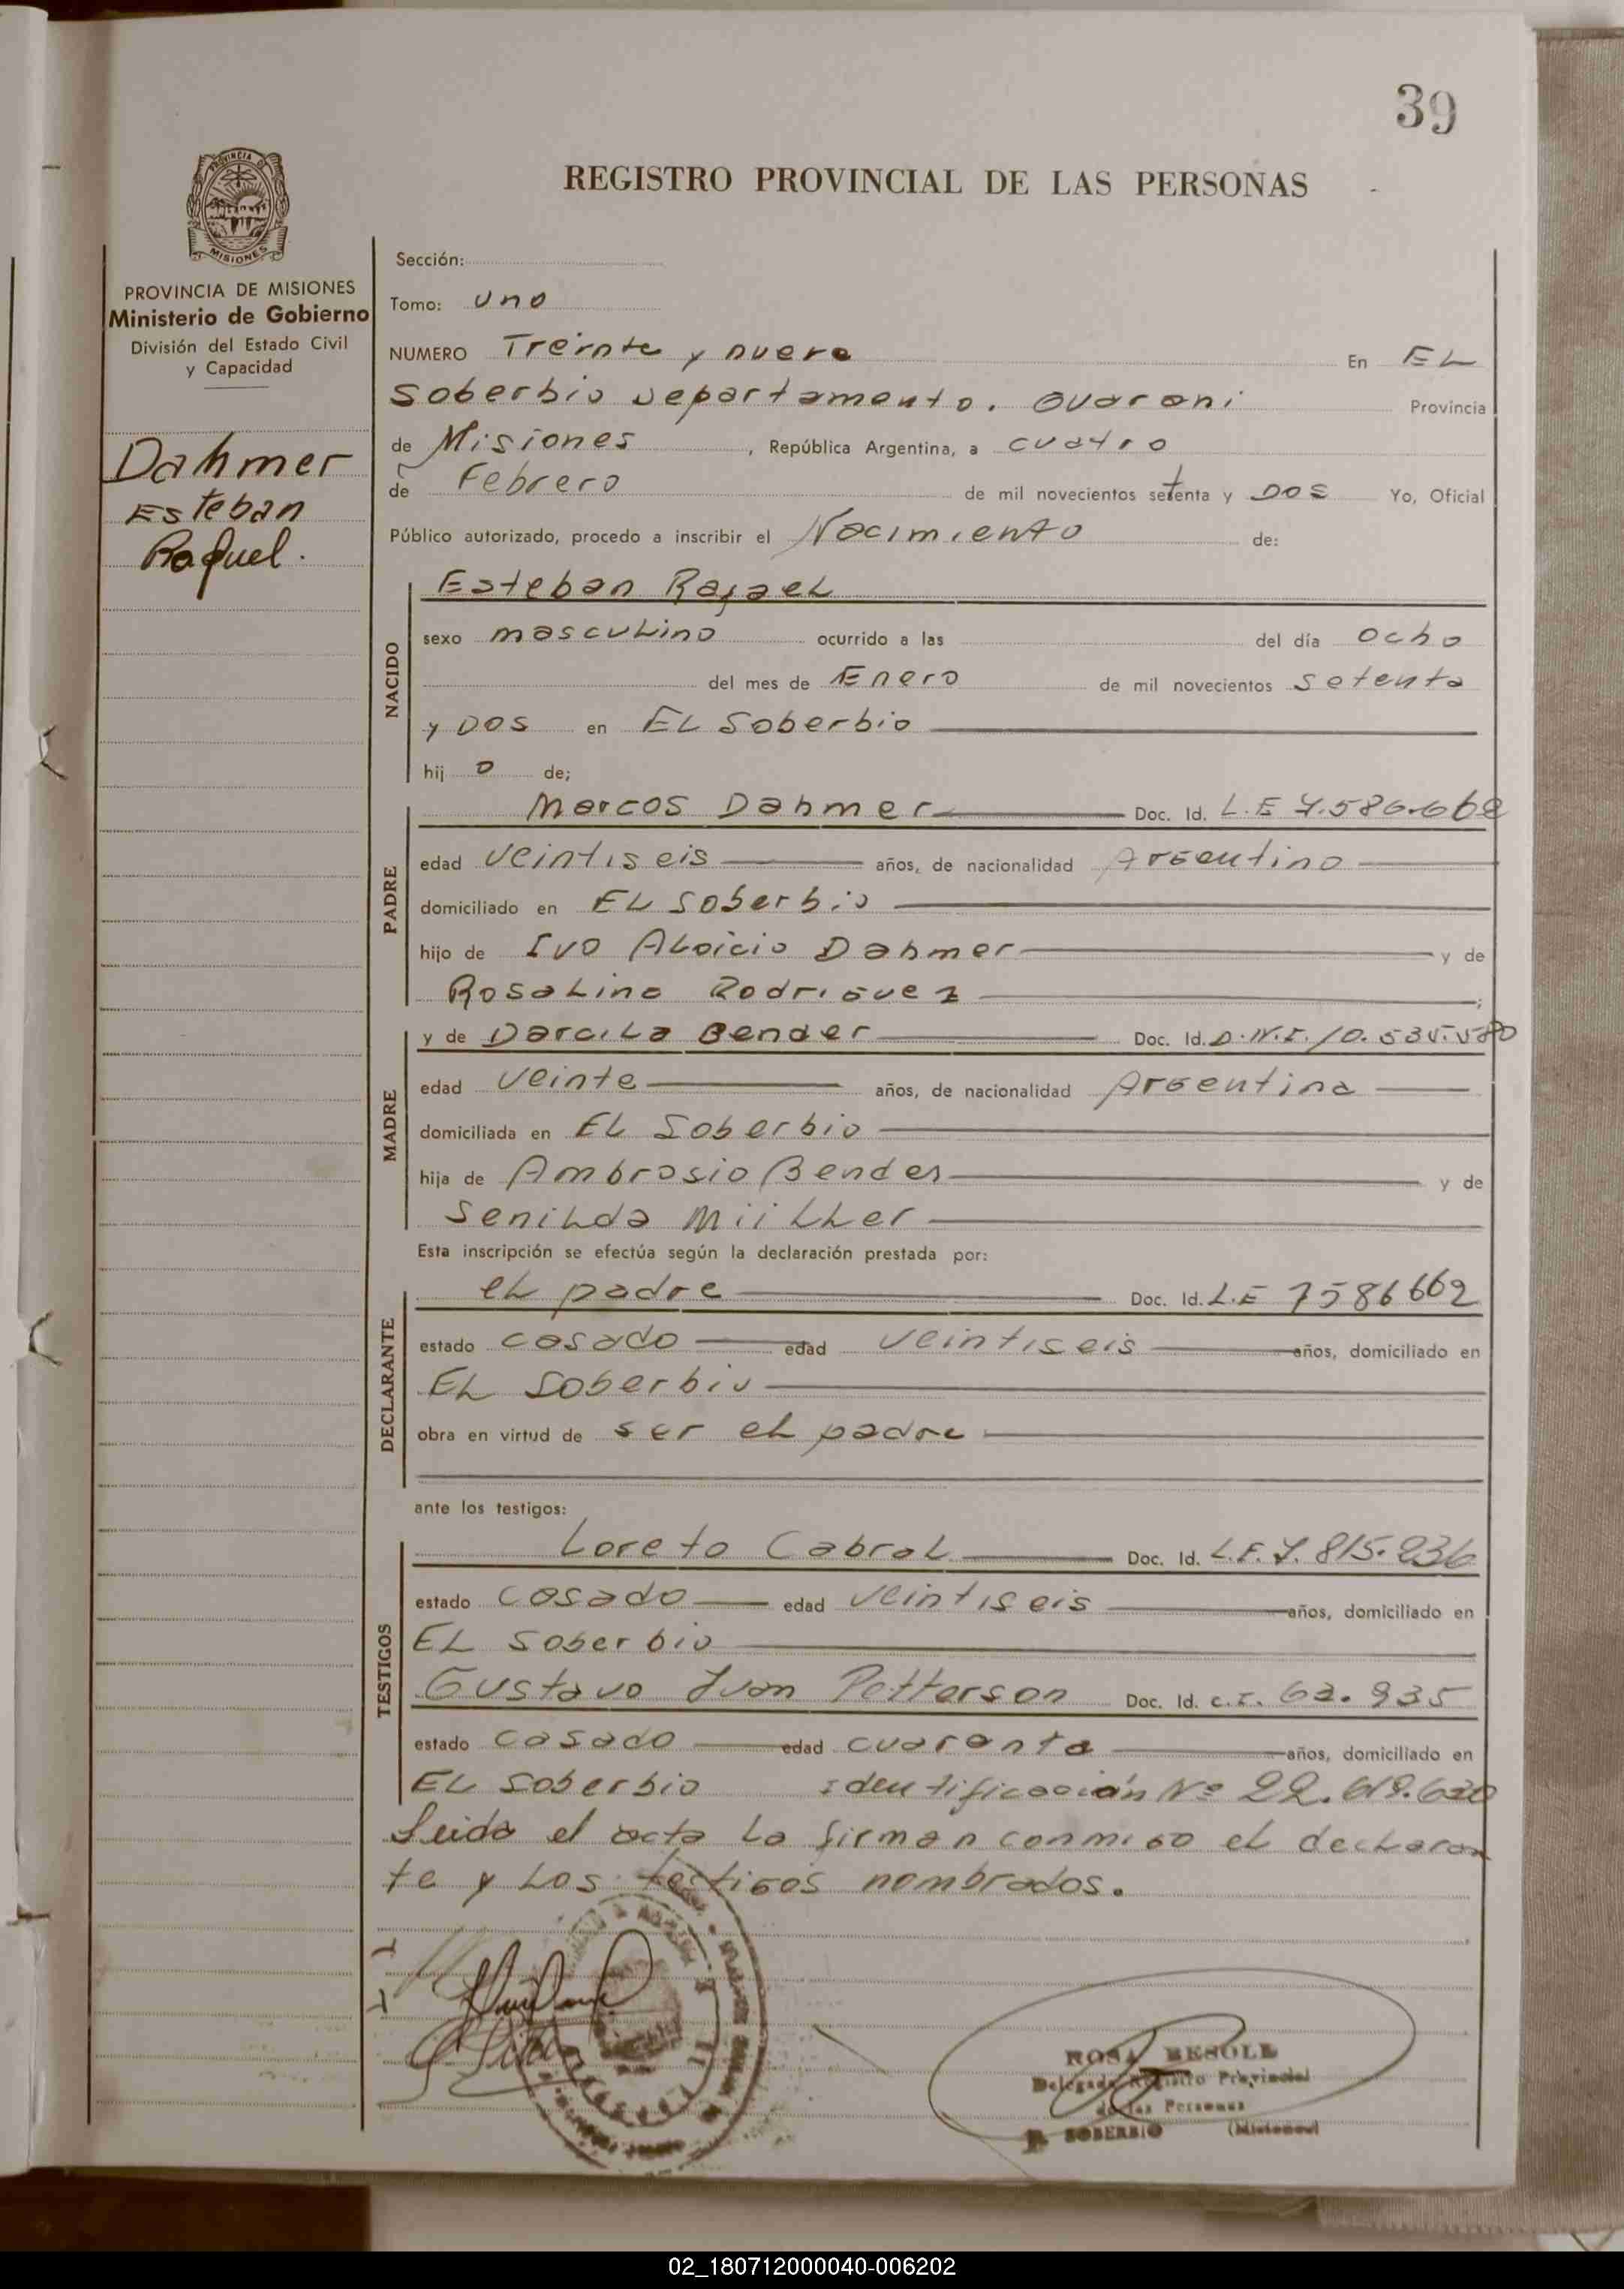 39
REGISTRO PROVINCIAL DE LAS PERSONAS
PROVINCIA DE
MISIONES
PROVINCIA DE MISIONES
Ministerio de Gobierno
División del Estado Civil
y Capacidad
Dahmer
Esteban
Rafuel.
Sección:
Tomo: uno
NUMERO Treinta y nueve En EL
Soberbio Departamento. Guarani Provincia
de Misiones, República Argentina, a cuatro
de Febrero de mil novecientos setenta y DOS Yo, Oficial
Público autorizado, procedo a inscribir el Nacimiento de:
NACIDO
Esteban Rafael
sexo masculino ocurrido a las del día ocho
del mes de Enero de mil novecientos setenta
y DOS en EL Soberbio
hij o de;
PADRE
Marcos Dahmer Doc. Id. L.E 7.586.662
edad veintiseis años, de nacionalidad Argentino
domiciliado en EL Soberbio
hijo de Ivo Aloicio Dahmer y de
Rosalino Rodriguez;
MADRE
y de Darcila Bender Doc. Id. D.N.I. 10.535.580
edad veinte años, de nacionalidad Argentina
domiciliada en EL Soberbio
hija de Ambrosio Bender y de
Senilda Miiller
Esta inscripción se efectúa según la declaración prestada por:
DECLARANTE
el padre Doc. Id. L.E 7586662
estado casado edad veintiseis años, domiciliado en
EL Soberbio
obra en virtud de ser el padre
ante los testigos:
TESTIGOS
Loreto Cabral Doc. Id. L.E. 7.815.236
estado casado edad veintiseis años, domiciliado en
EL Soberbio
Gustavo Juan Petterson Doc. Id. C.I. 62.935
estado casado edad cuaranta años, domiciliado en
EL Soberbio identificación Nº 22.619.620
Leida el acta la firman conmigo el declaran
te y los testigos nombrados.
ROSA BESOLD
Delegada Registro Provincial
de las Personas
EL SOBERBIO (Misiones)
02_180712000040-006202